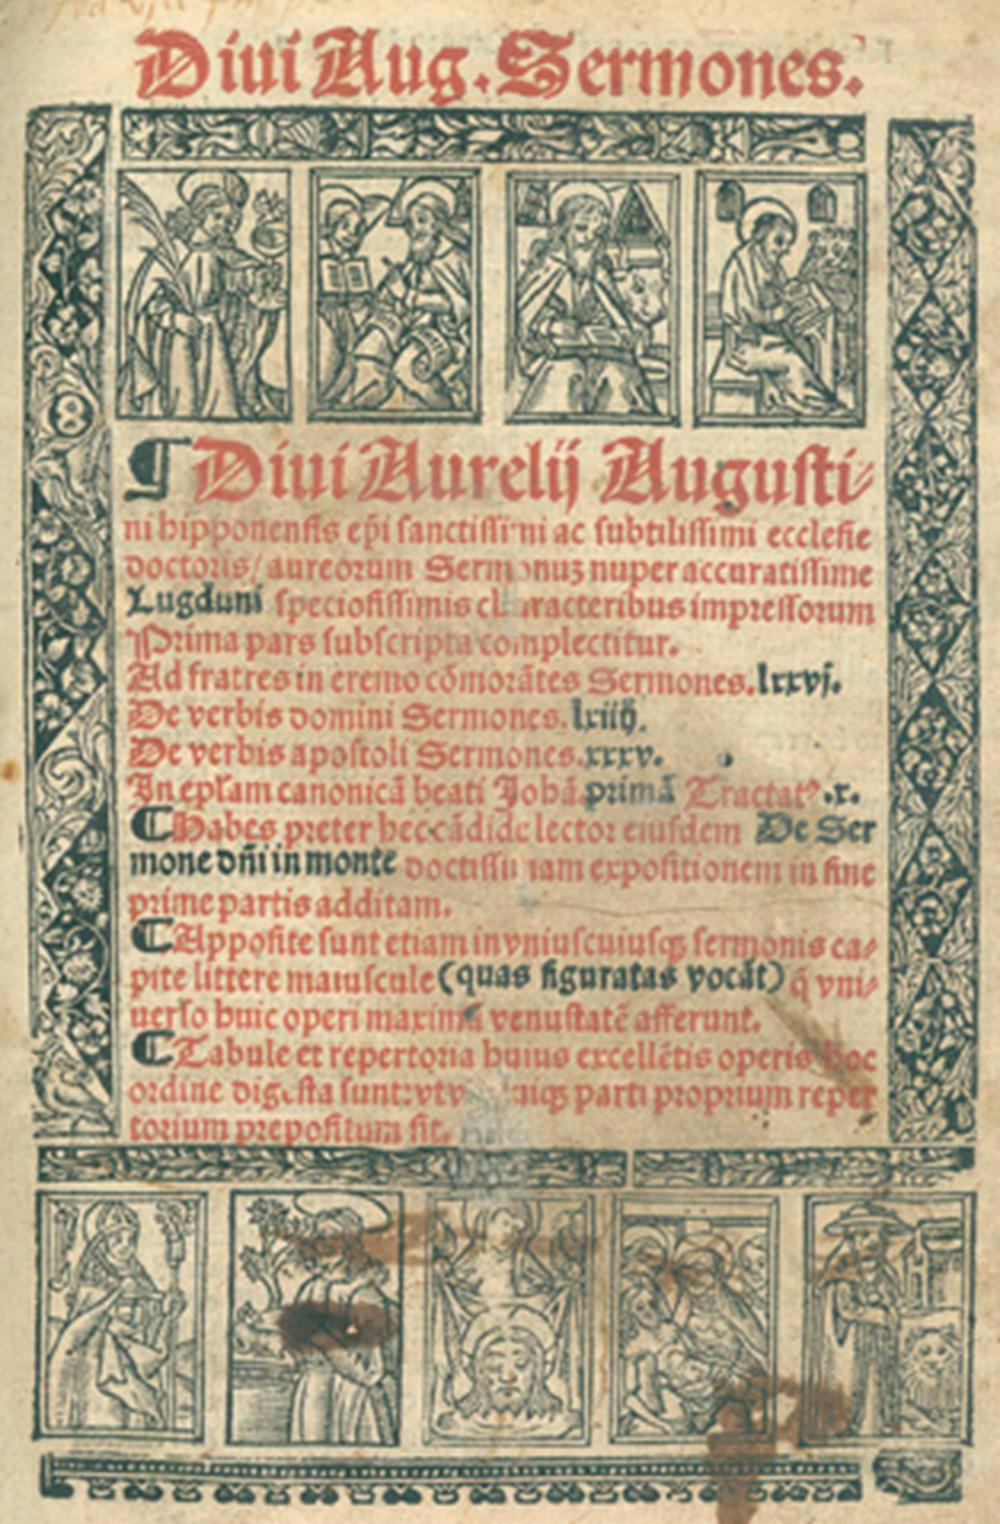 Diui Aug. Sermones.
¶ Diui Aurelij Augusti⸗
ni hipponensis ep̄i sanctissimi ac subtilissimi ecclesie
doctoris/ aureorum Sermonuꝫ nuper accuratissime
Lugduni speciosissimis characteribus impressorum
Prima pars subscripta complectitur.
Ad fratres in eremo cōmorātes Sermones. lxxvj.
De verbis domini Sermones. lxiiij.
De verbis apostoli Sermones. xxxv.
In ep̄lam canonicā beati Johā. primā Tractatꝰ .x.
Habes preter hec cādide lector eiusdem De Ser
mone dn̄i in monte doctissimam expositionem in fine
prime partis additam.
Apposite sunt etiam in vniuscuiusqꝫ sermonis ca⸗
pite littere maiuscule (quas figuratas vocāt) q̄ vni⸗
uerso huic operi maximā venustatē afferunt.
Tabule et repertoria huius excellētis operis hoc
ordine digesta sunt: vt parti proprium reper
torium prepositum sit.